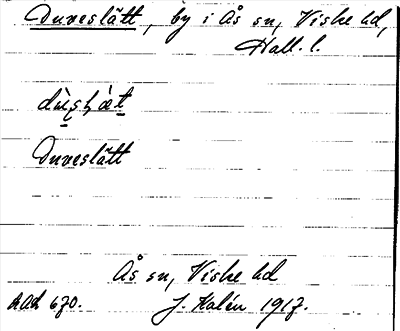 Duveslätt, by i Ås sn, Viske hd,
Hall. l.
Duveslätt
Ås sn, Viske hd
AOd 670. J. Kalén 1917.